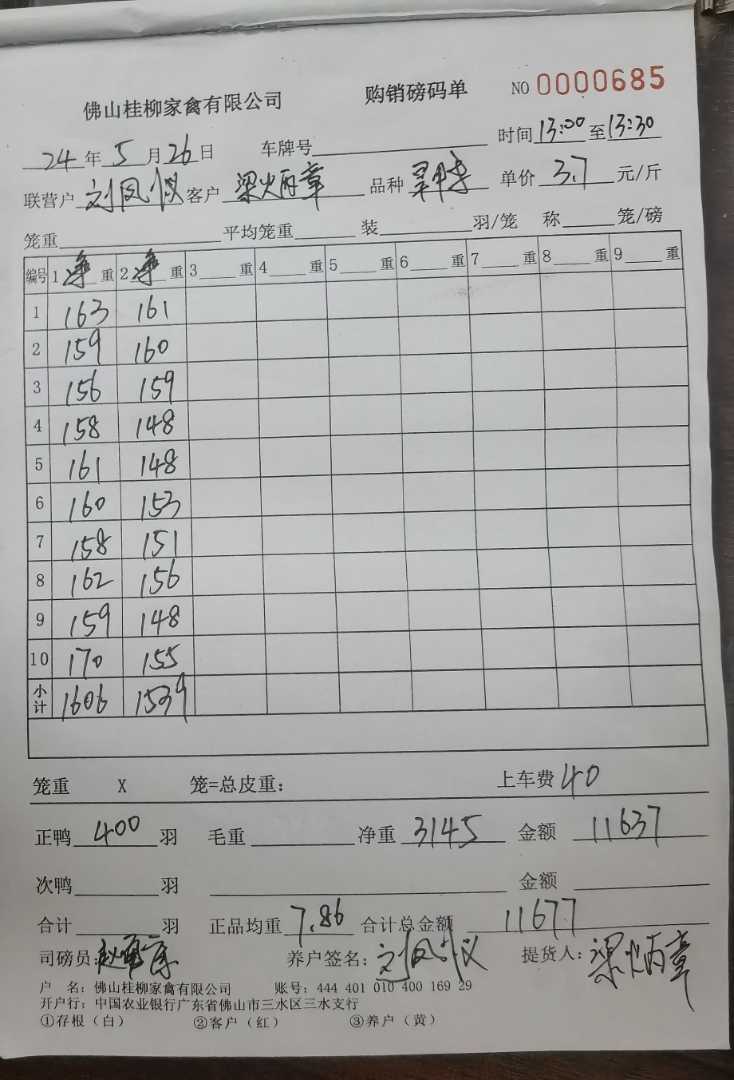 佛山桂柳家禽有限公司 购销磅码单 NO 0000685
24年5月26日 车牌号 时间13:00至13:30
联营户 刘凤仪 客户 梁炳章 品种 单价 3.7 元/斤
笼重 平均笼重 装 羽/笼 称 笼/磅
编号 1净重 2净重 3 重 4 重 5 重 6 重 7 重 8 重 9 重
1 163 161
2 159 160
3 156 159
4 158 148
5 161 148
6 160 153
7 158 151
8 162 156
9 159 148
10 170 155
小计 1606 1539
笼重 X 笼=总皮重: 上车费 40
正鸭 400 羽 毛重 净重 3145 金额 11637
次鸭 羽 金额
合计 羽 正品均重 7.86 合计总金额 11677
司磅员: 养户签名: 刘凤仪 提货人: 梁炳章
户 名: 佛山桂柳家禽有限公司 账号: 444 401 010 400 169 29
开户行: 中国农业银行广东省佛山市三水区三水支行
①存根(白) ②客户(红) ③养户(黄)